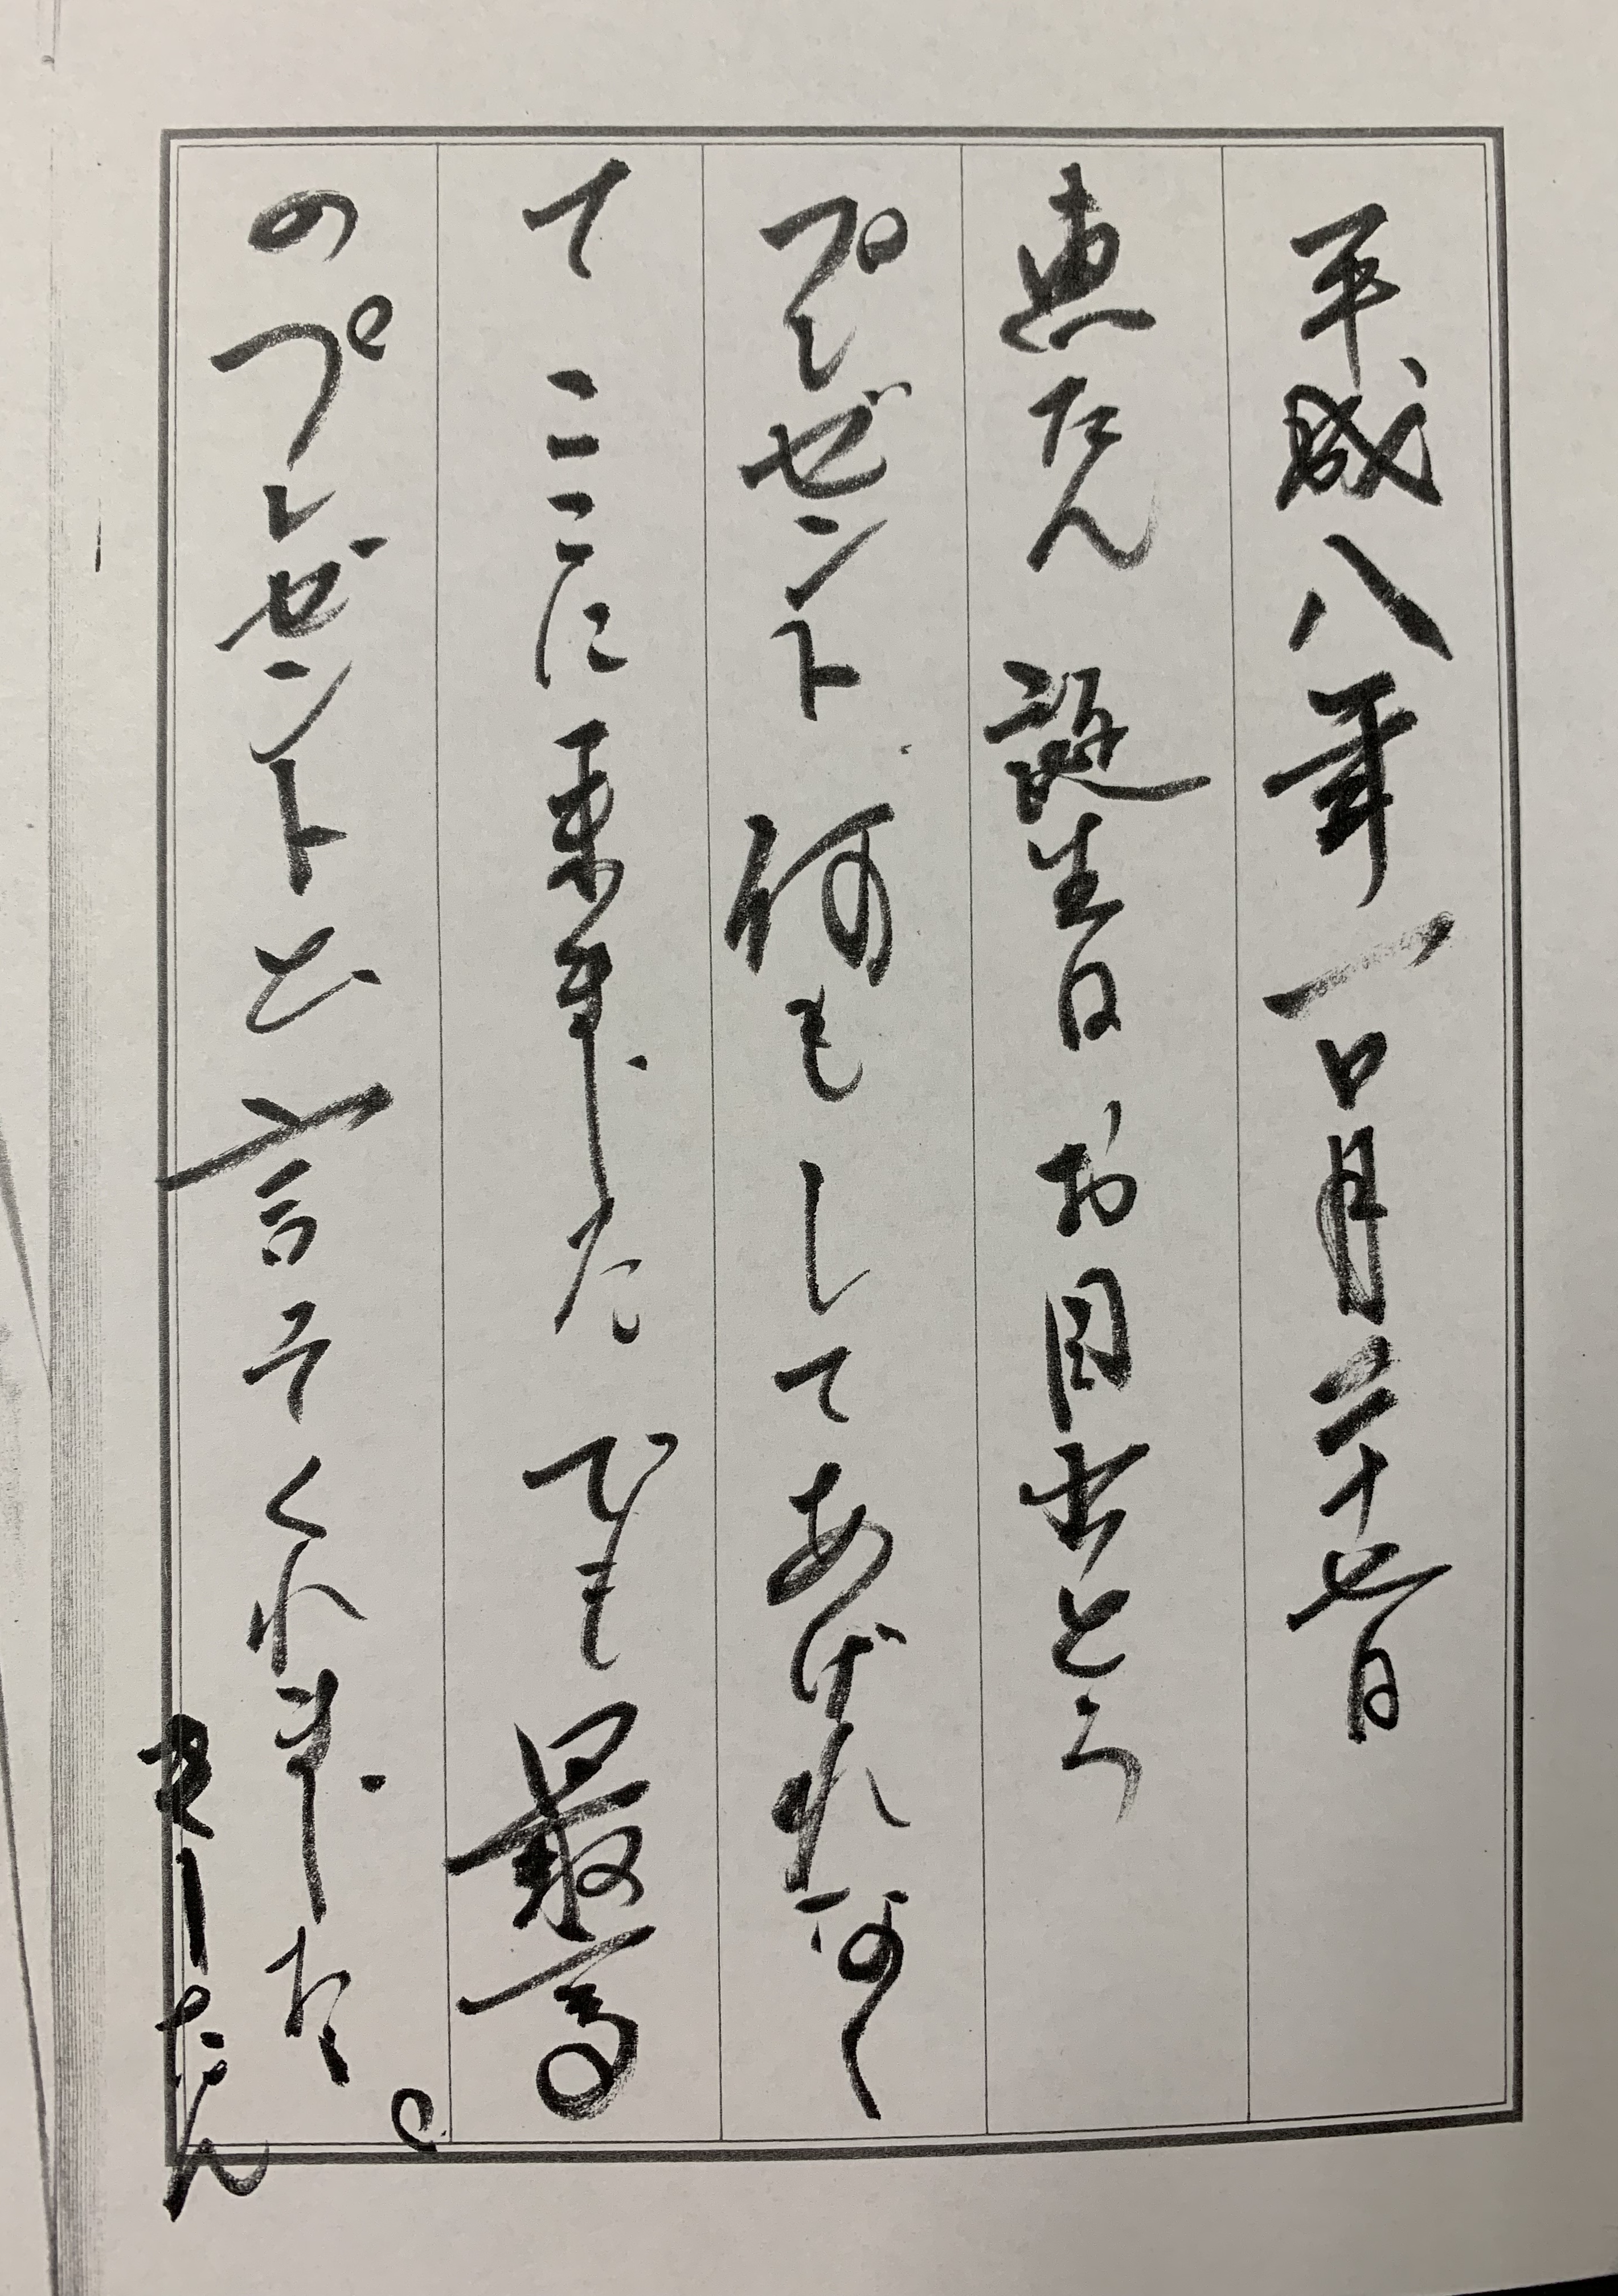 平成八年一月二十七日
恵たん 誕生日 お目出とう
プレゼント 何も してあげれなく
て ここに来ました でも 最高
のプレゼントと 言ってくれました。
きーたん